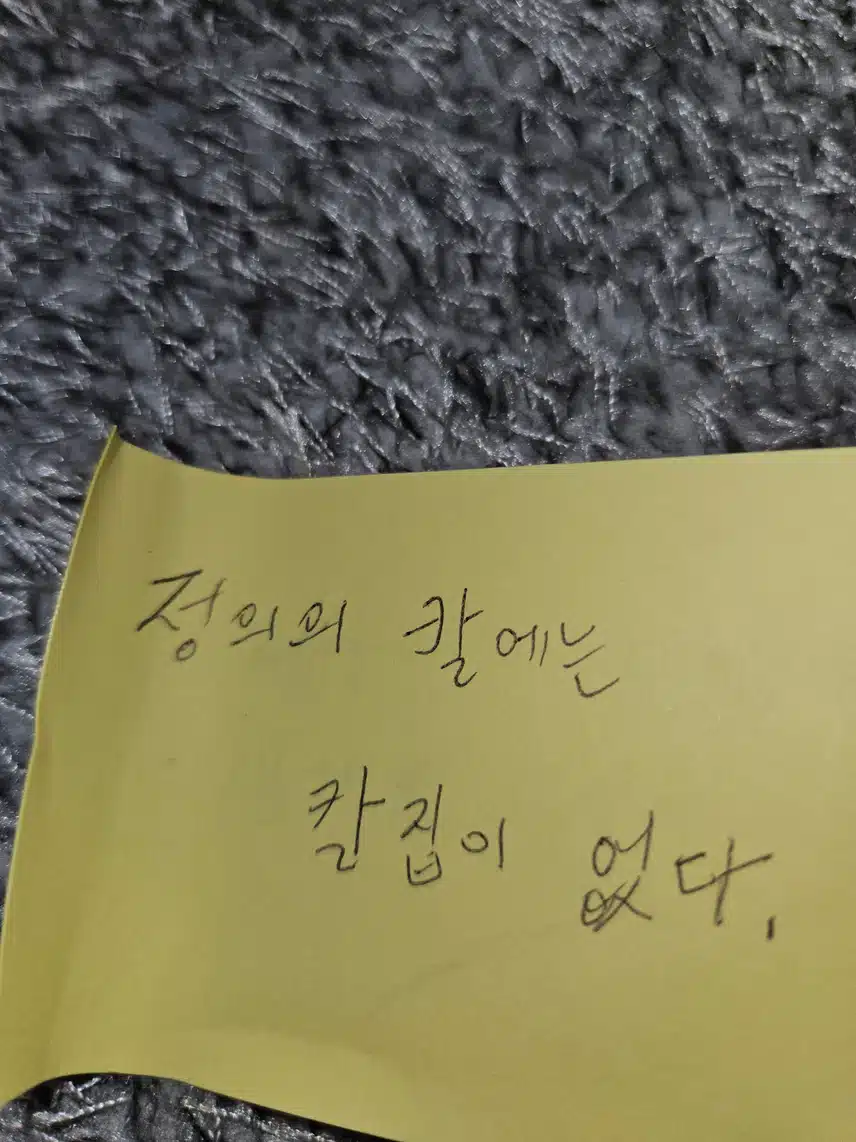 정의의 칼에는
칼집이 없다.